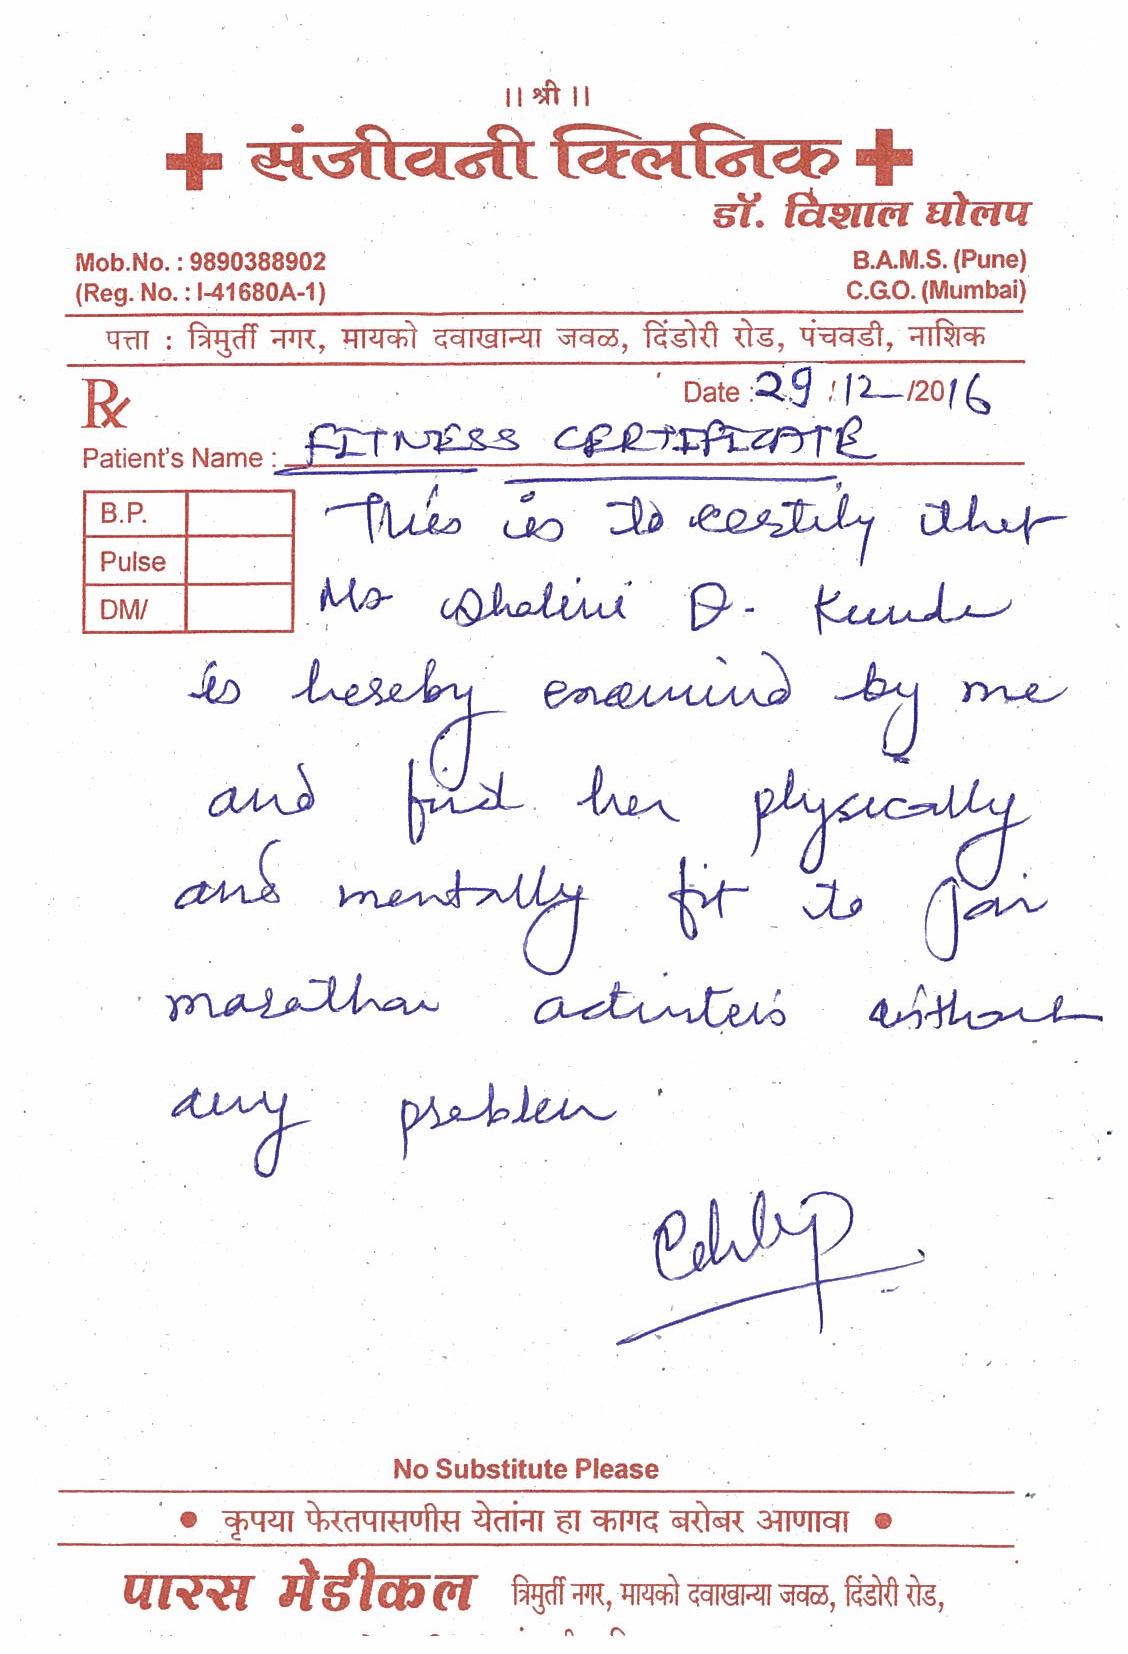 || श्री ||
संजीवनी क्लिनिक
डॉ. विशाल घोलप
Mob.No. : 9890388902
B.A.M.S. (Pune)
(Reg. No. : I-41680A-1)
C.G.O. (Mumbai)
पत्ता : त्रिमुर्ती नगर, मायको दवाखान्या जवळ, दिंडोरी रोड, पंचवडी, नाशिक
Rx
Date : 29/12/2016
Patient's Name : FITNESS CERTIFICATE
B.P.
Pulse
DM/
This is to certify that
Ms Shalini D. Kunde
is hereby examind by me
and find her physically
and mentally fit to join
marathon activities without
any problem
No Substitute Please
• कृपया फेरतपासणीस येतांना हा कागद बरोबर आणावा •
पारस मेडीकल त्रिमुर्ती नगर, मायको दवाखान्या जवळ, दिंडोरी रोड,